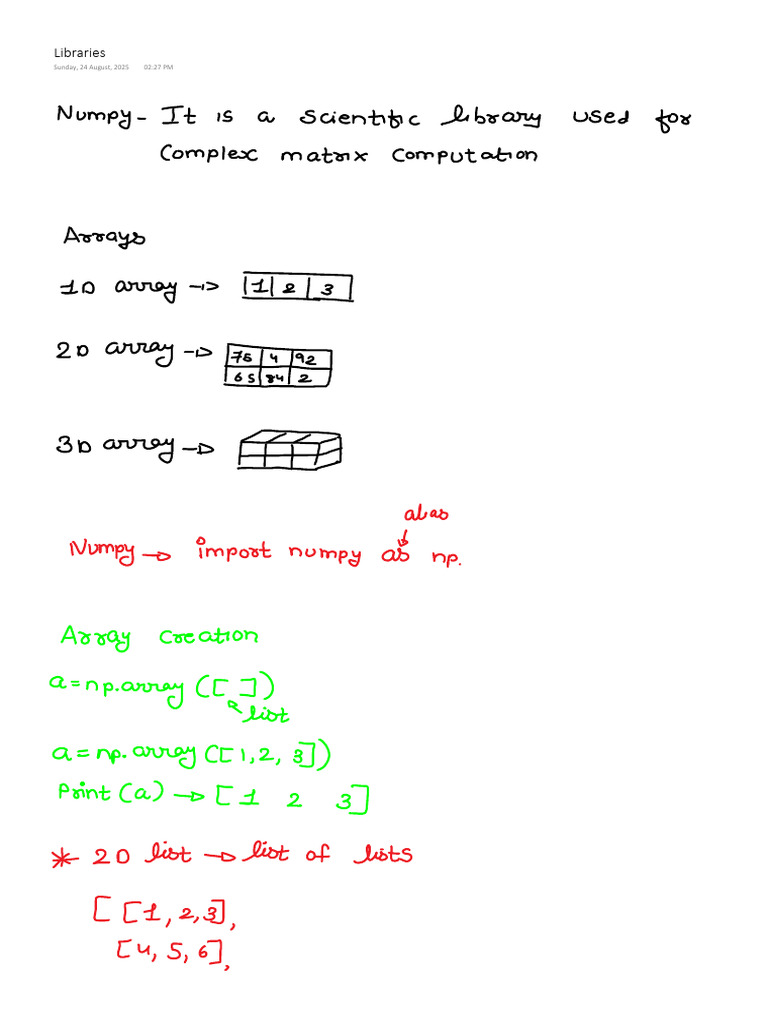 Libraries
Sunday, 24 August, 2025 02:27 PM
Numpy - It is a scientific library used for
Complex matrix computation
Arrays
1D array → 1 2 3
2D array → 75 4 92
65 84 2
3D array →
alias
Numpy → import numpy as np.
Array creation
a = np.array([ ])
list
a = np.array([1, 2, 3])
Print(a) → [1 2 3]
* 2D list → list of lists
[ [1, 2, 3],
[4, 5, 6],